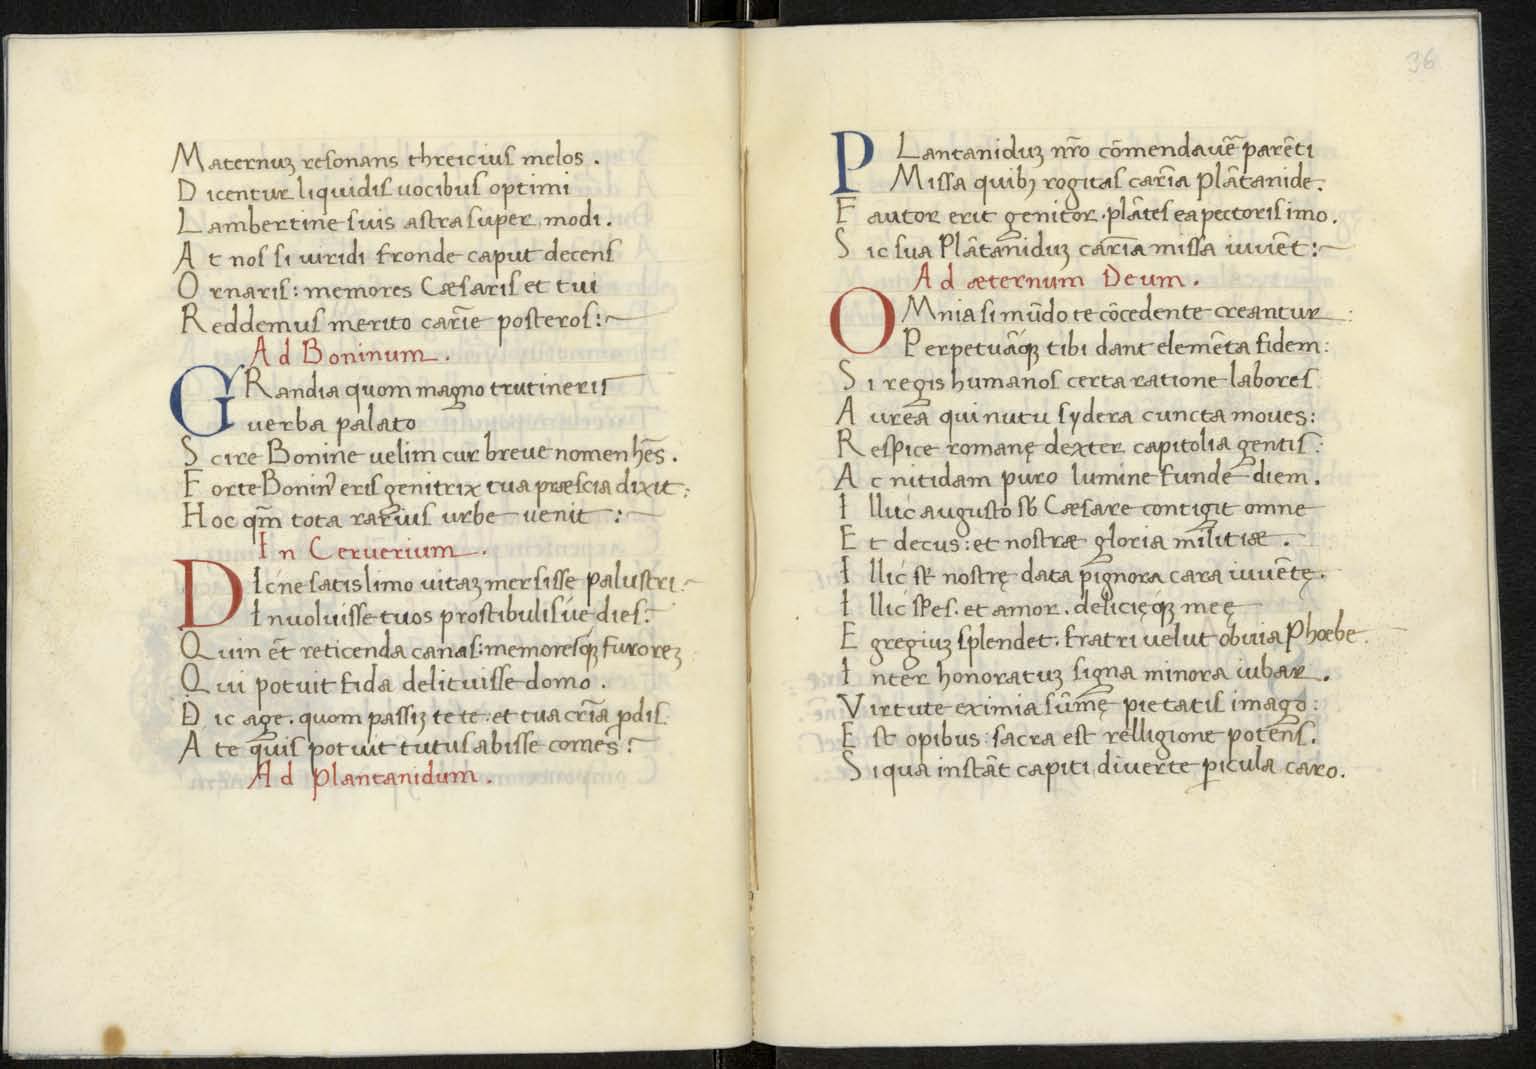 Maternuȝ resonans threicius melos .
Dicentur liquidis uocibus optimi
Lambertine suis astra super modi .
At nos si uiridi fronde caput decens
Ornaris : memores Cæsaris et tui
Reddemus merito carīe posteros :~
Ad Boninum .
GRandia quom magno trutineris
uerba palato
Scire Bonine uelim cur breue nomen hēs .
Forte Bonin⁹ eris genitrix tua præscia dixit ;
Hoc qm̄ tota rarius urbe uenit :~
In Ceruerium .
DIc ne satis limo uitaȝ mersisse palustri :~
Inuoluisse tuos prostibulis ue dies :~
Quin ēt reticenda canas : memoresqȝ furoreȝ
Qui potuit fida delituisse domo .
Dic age . quom passiȝ te te . et tua crīa ꝑdis
A te quis potuit tutus abisse comes :~
Ad Plantanidum .
36
PLantaniduȝ nr̄o cōmendauē parēti
Missa quibȝ rogitas carīa Plātanide .
Fautor erit genitor . plātes ea pectoris imo .
Sic sua Plātaniduȝ carīa missa iuuēt :~
Ad æternum Deum .
OMnia si mūdo te cōcedente creantur :
Perpetuāqȝ tibi dant elemēta fidem :
Si regis humanos certa ratione labores
Aurea qui nutu sydera cuncta moues :
Respice romanę dexter capitolia gentis :
Ac nitidam puro lumine funde diem .
Illic augusto sb̄ Cæsare contigit omne
Et decus : et nostræ gloria militiæ .
Illic st̄ nostrę data pignora cara iuuētę .
Illic spes . et amor . delicięqȝ meę
Egregiuȝ splendet . fratri uelut obuia Phœbe .
Inter honoratuȝ signa minora iubar .
Virtute eximia sūmę pietatis imago :
Est opibus : sacra est relligione potens .
Si qua instāt capiti diuerte ꝑicula caro .